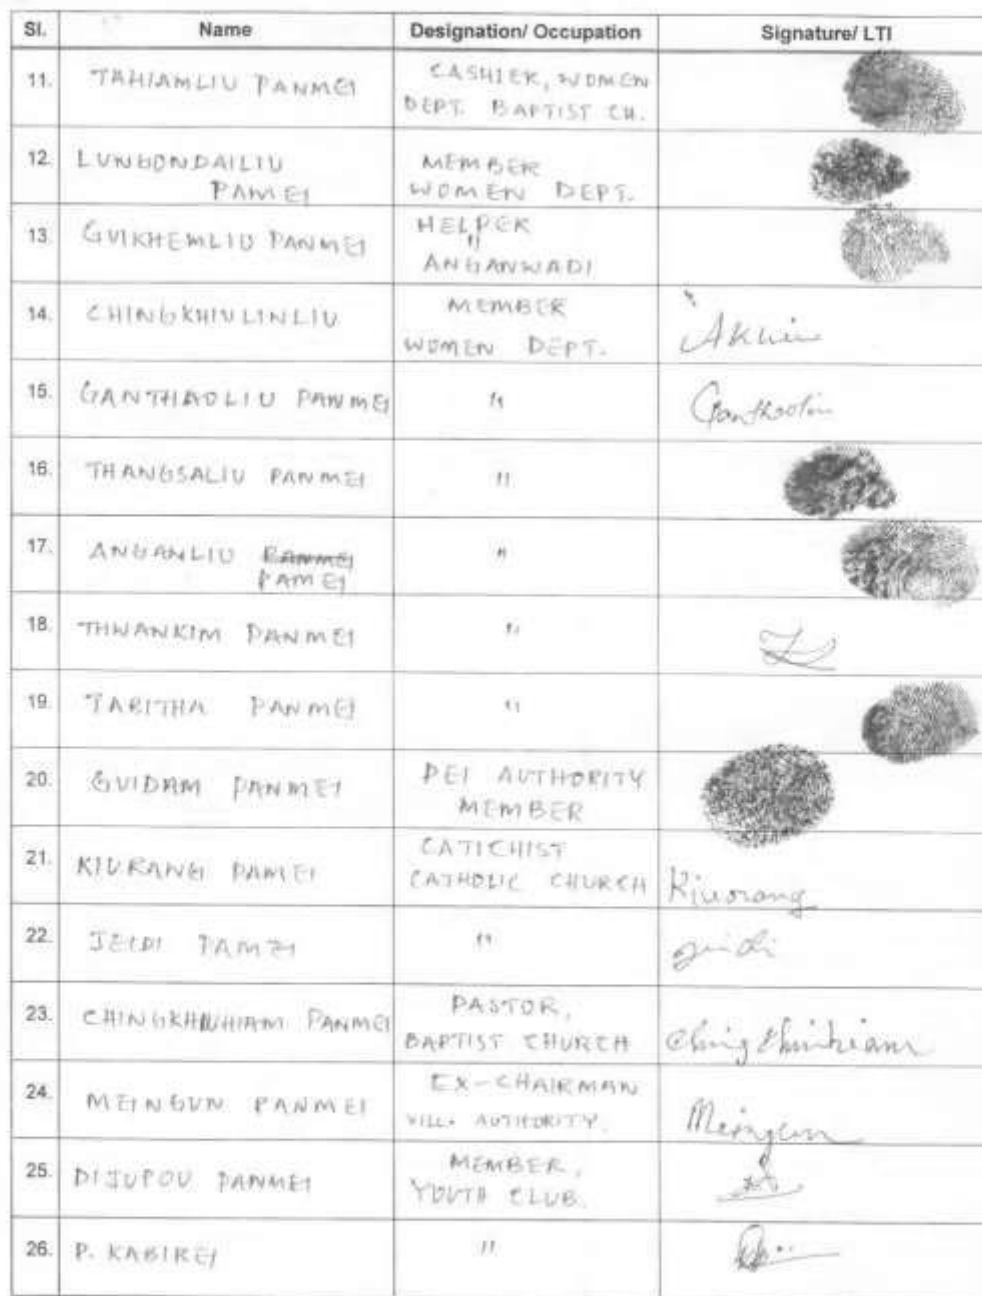 Sl. Name Designation/ Occupation Signature/ LTI
11. TAHIAMLIU PANMEI CASHIER, WOMEN
DEPT. BAPTIST CH.
12. LUNGONDAILIU MEMBER
PAMEI WOMEN DEPT.
13. GUIKHEMLIU PANMEI HELPER
"
ANGANWADI
14. CHINGKHIULINLIU MEMBER
WOMEN DEPT. Akhim
15. GANTHAOLIU PANMEI " Ganthaoliu
16. THANGSALIU PANMEI "
17. ANGANLIU PANMEI "
PAMEI
18. THWANKIM PANMEI "
19. TABITHA PANMEI "
20. GUIDAM PANMEI PEI AUTHORITY
MEMBER
21. KIURANG PAMEI CATICHIST
CATHOLIC CHURCH Kiuorang
22. JEIDI PAMEI " jeidi
23. PANMEI PASTOR,
BAPTIST CHURCH
24. MEINGUN PANMEI EX-CHAIRMAN
VILL. AUTHORITY. Meingun
25. DIJUPOU PANMEI MEMBER,
YOUTH CLUB.
26. P. KABIREI "